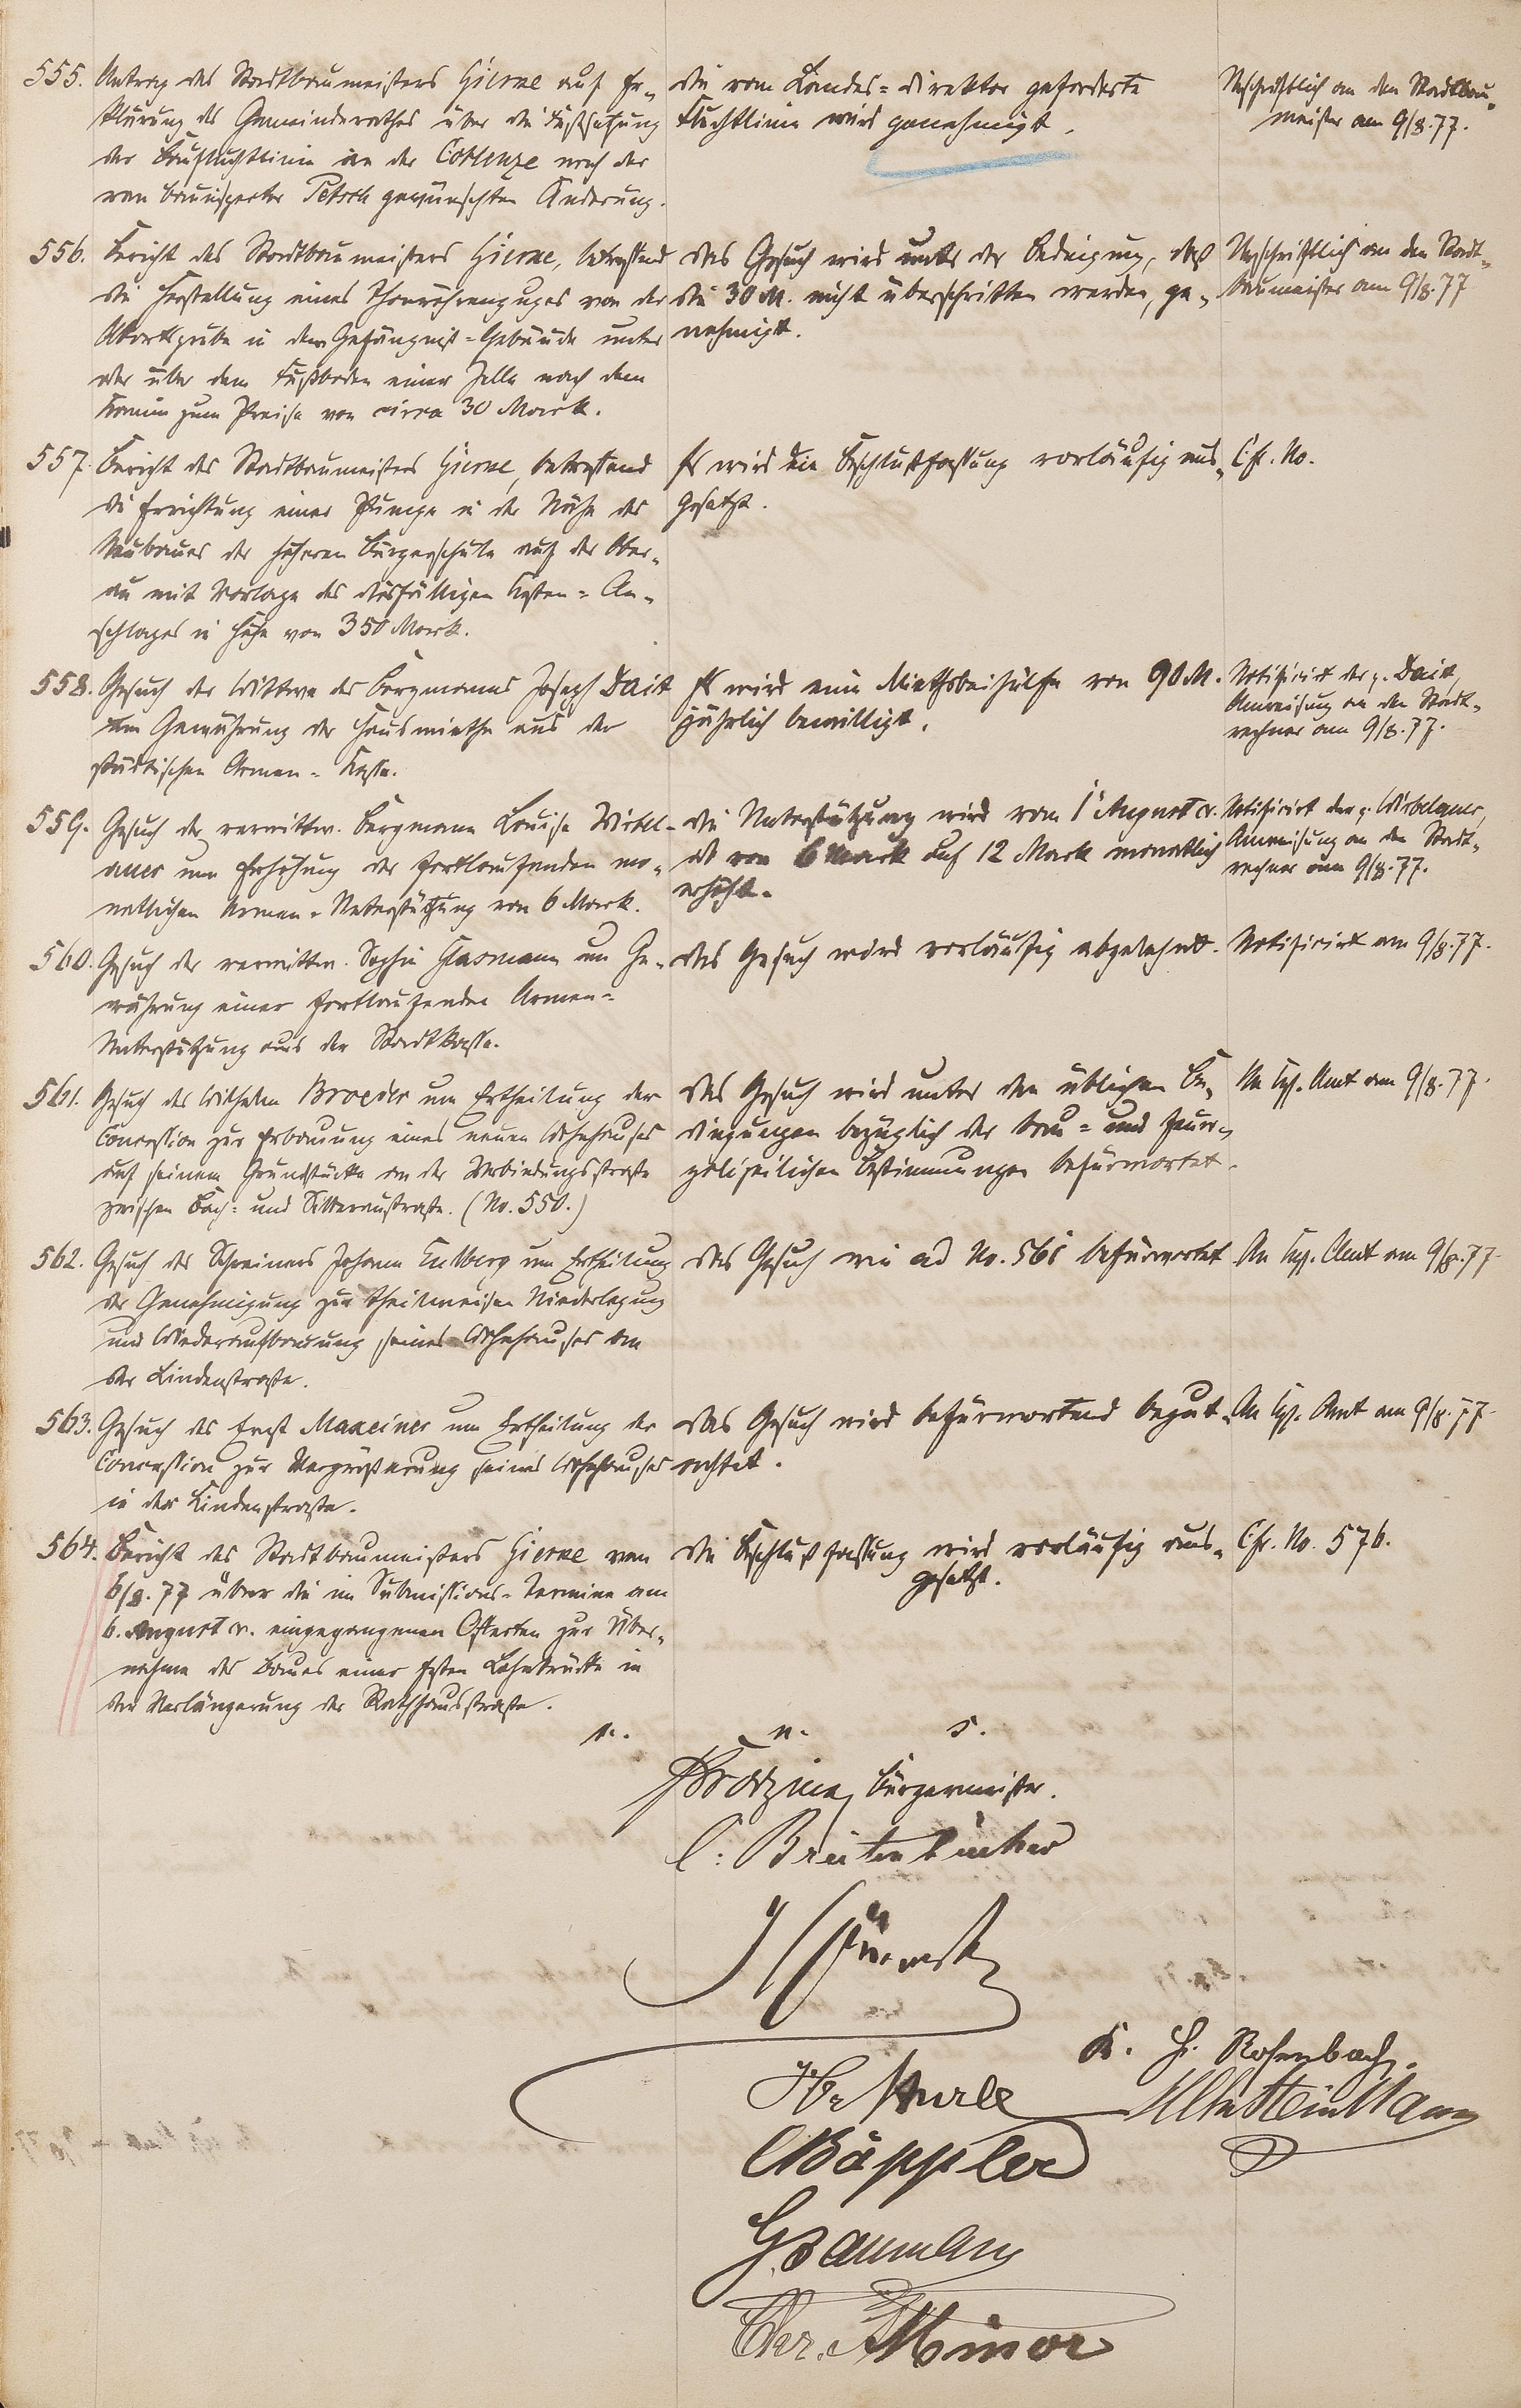 555. Antrag des Stadtbaumeisters Gierae auf Er-
klärung des Gemeinderathes über die Festsetzung
der Baufluchtlinie in der Coblenze nach der
von Bauinspector Petsch gewünschten Änderung.
Die vom Landes-Direktor geforderte
Fluchtlinie wird genehmigt.
Abschriftlich an den Stadtbau-
meister am 9/8.77.
556. Bericht des Stadtbaumeisters Gierae, betreffend
die Herstellung eines Thonröhrenzuges von der
Abortgrube in dem Gefängniß-Gebäude unter
oder über dem Fußboden einer Zelle nach dem
Kamin zum Preise von circa 30 Mark.
Das Gesuch wird unter der Bedingung, daß
die 30 M. nicht überschritten werden, ge-
nehmigt.
Abschriftlich an den Stadt-
baumeister am 9/8.77
557. Bericht des Stadtbaumeisters Gierae, betreffend
die Errichtung einer Pumpe in der Nähe des
Neubaues der höheren Bürgerschule auf der Ober-
au mit Vorlage des diesfälligen Kosten-An-
schlages in Höhe von 350 Mark.
Es wird die Beschlußfassung vorläufig aus-
gesetzt.
Cfr. No.
558. Gesuch der Wittwe des Bergmanns Joseph Dait
um Gewährung der Hausmiethe aus der
städtischen Armen-Kasse.
Es wird eine Miethsbeihülfe von 90 M.
jährlich bewilligt.
Notificirt der p. Dait,
Anweisung an den Stadt-
rechner am 9/8.77.
559. Gesuch der verwittw. Bergmann Louise Wirbel-
auer um Erhöhung der fortlaufenden mo-
natlichen Armen-Unterstützung von 6 Mark.
Die Unterstützung wird vom 1 August cr.
ab von 6 Mark auf 12 Mark monatlich
erhöht.
Notificirt der p. Wirbelauer,
Anweisung an den Stadt-
rechner am 9/8.77.
560. Gesuch der verwittw. Sophie Glasmann um Ge-
währung einer fortlaufenden Armen-
Unterstützung aus der Stadtkasse.
Das Gesuch wird vorläufig abgelehnt.
Notificirt am 9/8.77.
561. Gesuch des Wilhelm Broeder um Ertheilung der
Concession zur Erbauung eines neuen Wohnhauses
auf seinem Grundstücke an der Verbindungsstraße
zwischen Bach- und Sitteraustraße. (No. 550.)
Das Gesuch wird unter den üblichen Be-
dingungen bezüglich der bau- und feuer-
polizeilichen Bestimmungen befürwortet.
An Kgl. Amt am 9/8.77.
562. Gesuch des Schreiners Johann Eulberg um Ertheilung
der Genehmigung zur theilweisen Niederlegung
und Wiederaufbauung seines Wohnhauses an
der Lindenstraße.
Das Gesuch wie ad No. 561 befürwortet
An Kgl. Amt am 9/8.77.
563. Gesuch des Ernst Maxeiner um Ertheilung der
Concession zur Vergrößerung seines Wohnhauses
in der Lindenstraße.
Das Gesuch wird befürwortend begut-
achtet.
An Kgl. Amt am 9/8.77.
564. Bericht des Stadtbaumeisters Gierae vom
6/8.77 über die im Submissions-Termine am
6. August cr. eingegangenen Offerten zur Über-
nahme des Baues einer festen Lahnbrücke in
der Verlängerung der Rathhausstraße.
Die Beschlußfassung wird vorläufig aus-
gesetzt.
Cfr. No. 576.
v. n. s.
Bürgermeister.
C. Breitenbücher
K. H. Rosenbach.
Käppler
G. Baumann
Chr. Minor